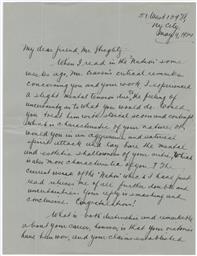 51 West 129th
Ny City,
May 9, 1924
My dear friend, Mr.
When I read in the Nation some
weeks ago, Mr. critical remarks
concerning you and your work, I experienced
a slight mental tremor due, the feeling of
uncertainty as to what you would do. Would
you treat him with stoical scorn and contempt
(which is characteristic of your nature) or
would you in an aggressive and
spirited attack and lay bare the mental
and shallowness of your critic, (which
is also more characteristic of you? The
current week of the Nation which I have just
read relieves me of all further doubts and
uncertainties. Your reply is smashing and
conclusive. Congratulations!
What is both distinctive and remarkable
about your career, however, is that your victories
have been won, and your claims established